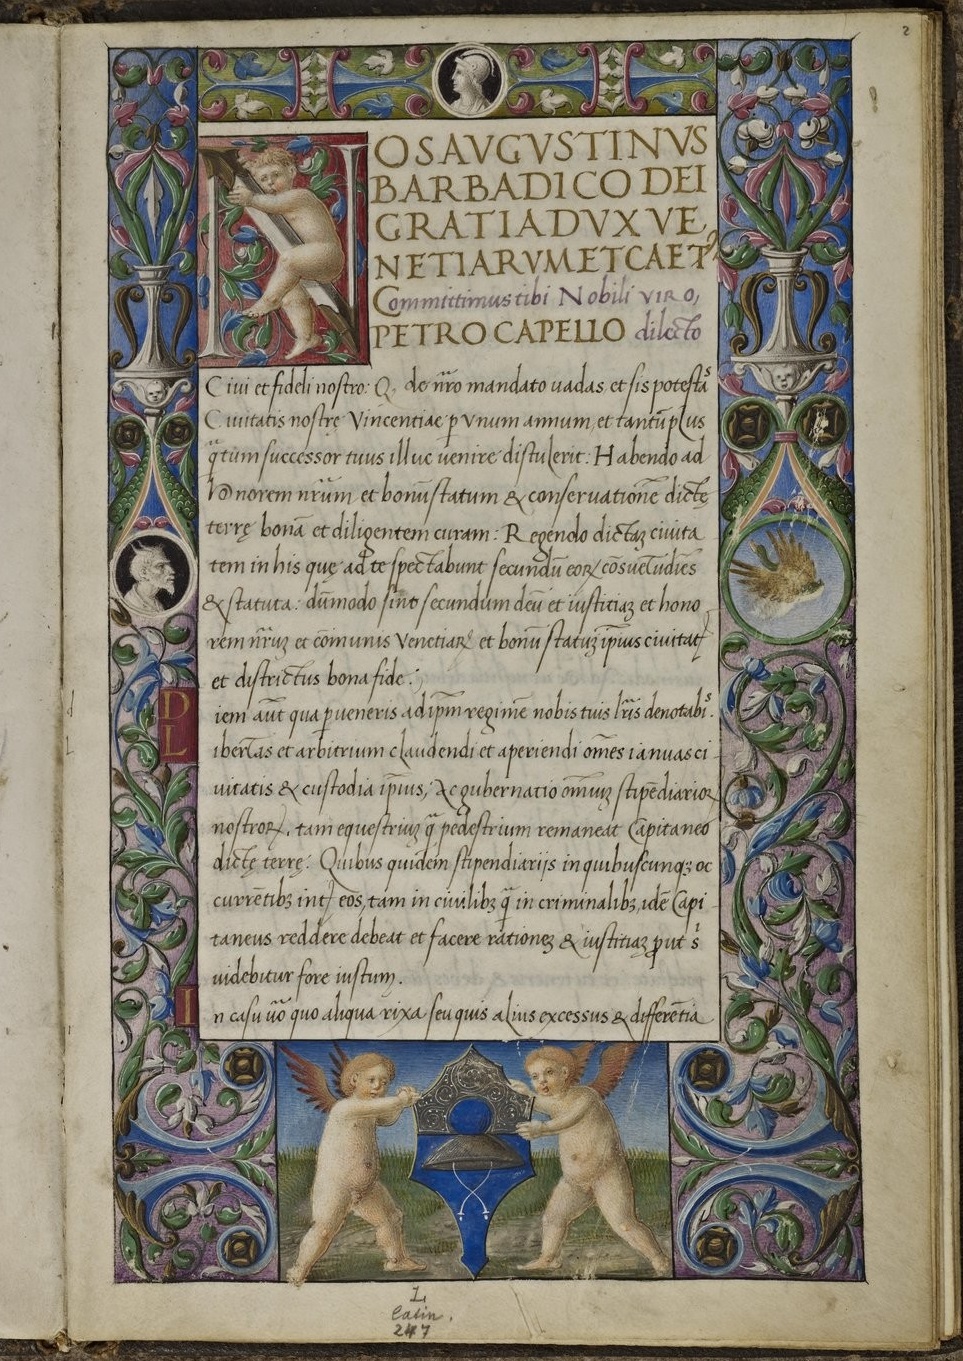 2
NOS AVGVSTINVS
BARBADICO DEI
GRATIA DVX VE
NETIARVM ET CAETꝰ
Committimus tibi Nobili viro,
PETRO CAPELLO dilecto
Civi et fideli nostro: Q, de nr̄o mandato uadas, et sis potestas
Ciuitatis nostrę Vincentiae ꝑ Vnum annum, et tantū plus
q̄tum successor tuus illuc uenire distulerit: Habendo ad
honorem nr̄um, et bonū statum & conseruationē dictę
terrę bonā et diligentem curam: Regendo dictaȝ ciuita
tem in his quę ad te spectabunt secundū eoꝝ cōsuetudīes
& statuta: dūmodo sint secundum deū et iustitiaȝ et hono
rem nr̄uȝ et cōmunis Venetiaꝝ et bonū statuȝ ip̄ius ciuitatꝭ
et districtus bona fide:
Diem aūt qua ꝑueneris ad ip̄m regimē nobis tuis lr̄is denotabis.
Libertas et arbitrium claudendi et aperiendi om̄es ianuas ci
uitatis & custodia ip̄ius, Ac gubernatio om̄iuȝ stipēdiarioꝝ
nostroꝝ, tam equestriuȝ q̄ pedestrium remaneat Capitaneo
dictę terrę: Quibus quidem stipendiarijs in quibuscunqȝ oc
currētibȝ intꝭ eos, tam in ciuilibȝ q̄ in criminalibȝ, idē Capi
taneus reddere debeat et facere rationeȝ & iustitiaȝ ꝓut s
uidebitur fore iustum.
In casu uō quo aliqua rixa seu quis alius excessus & differētia
L
Latin.
247